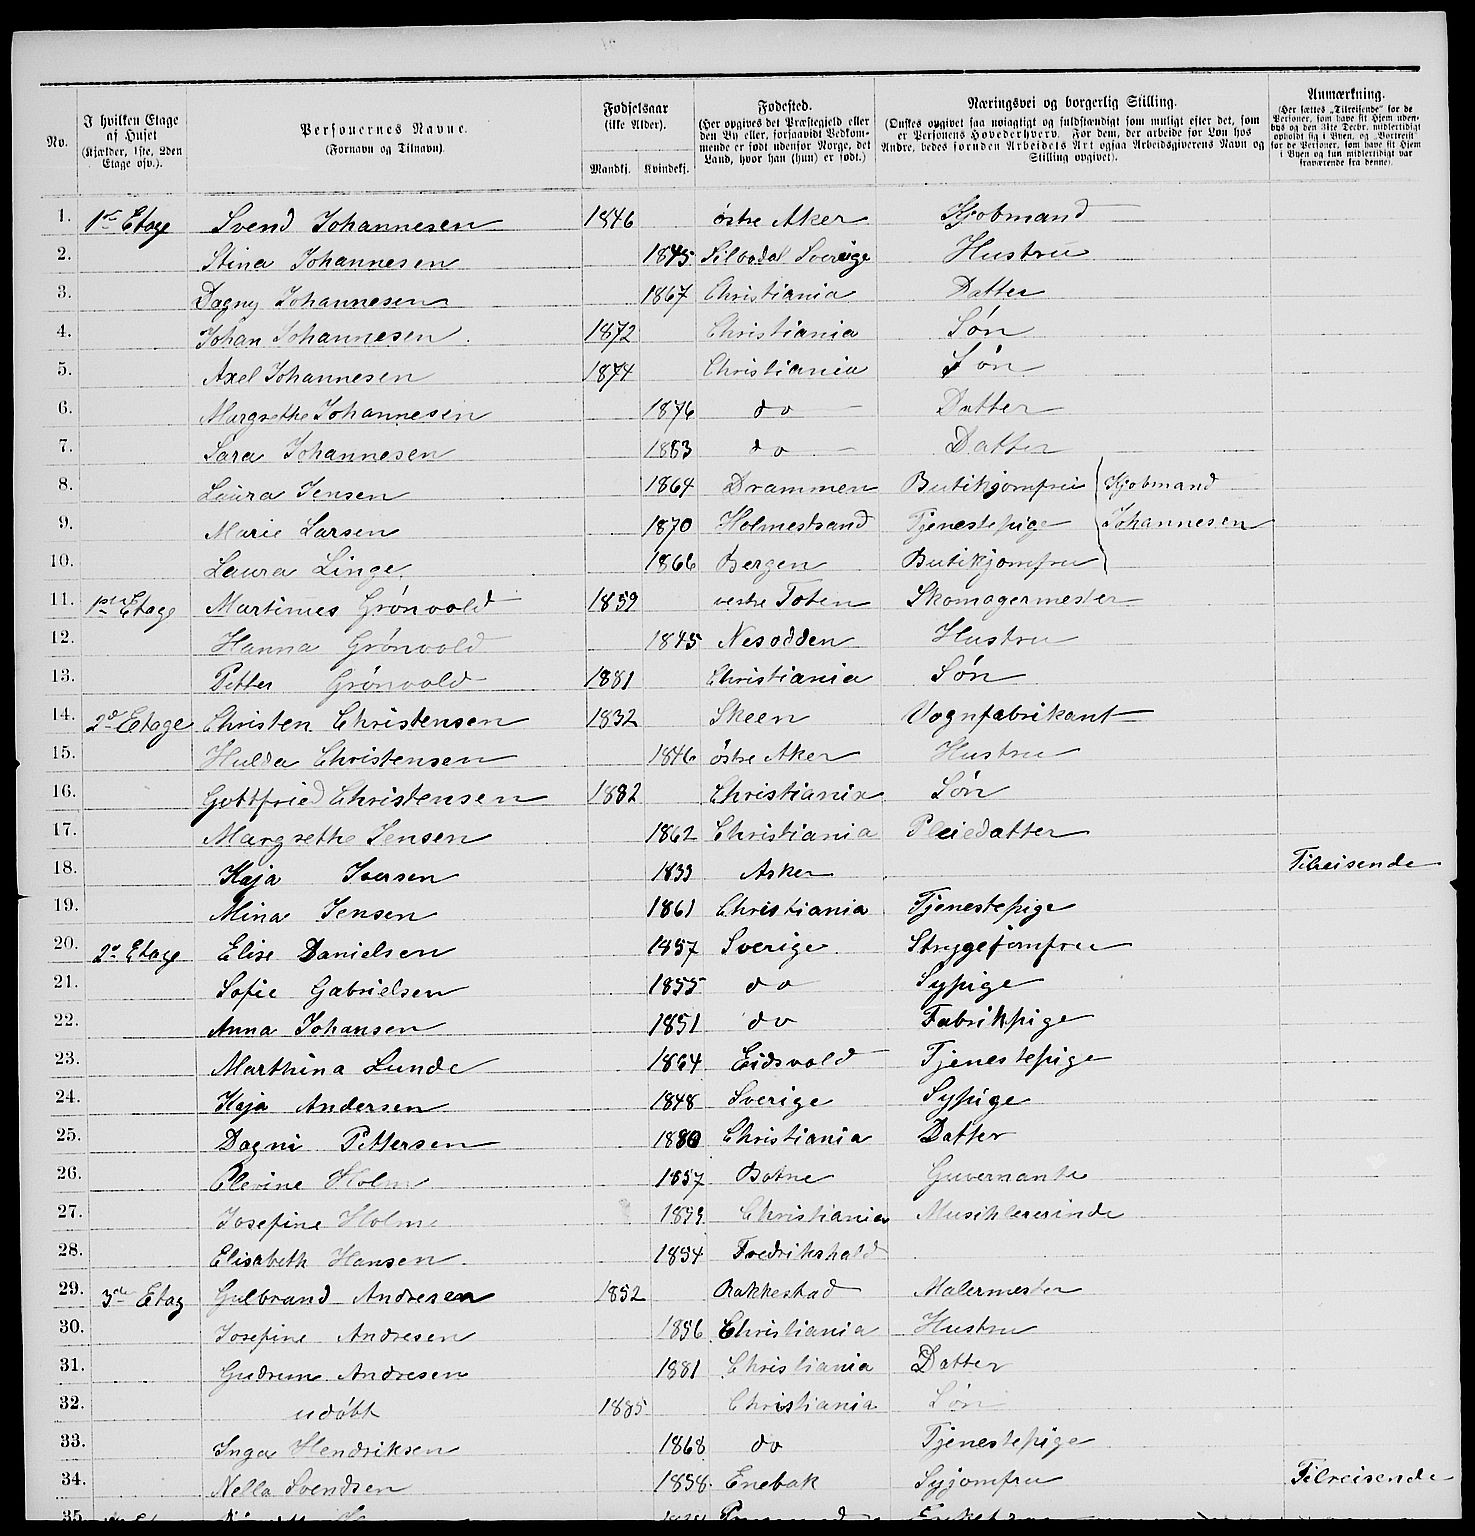 No.
I hvilken Etage af Huset (Kjælder, 1ste, 2den Etage osv.).
Personernes Navne. (Fornavn og Tilnavn).
Fødselsaar (ikke Alder). Mandkj. Kvindekj.
Fødested. (Her opgives det Præstegjeld eller den By eller, forsaavidt Vedkommende er født udenfor Norge, det Land, hvor han (hun) er født.)
Næringsvei og borgerlig Stilling. (Ønskes opgivet saa nøiagtigt og fuldstændigt som muligt efter det, som er Personens Hovederhverv. For dem, der arbeide for Løn hos Andre, bedes foruden Arbeidets Art ogsaa Arbeidsgiverens Navn og Stilling opgivet).
Anmærkning. (Her sættes „Tilreisende" for de Personer, som have sit Hjem udenbys og den 31te Decbr. midlertidigt opholdt sig i Byen, og „Bortreist" for de Personer, som have sit Hjem i Byen og kun midlertidigt var fraværende fra denne).
1. 1ste Etage Svend Johannesen 1846 østre Aker Kjøbmand
2. Stina Johannesen 1845 Silbodal Sverige Hustru
3. Dagny Johannesen 1867 Christiania Datter
4. Johan Johannesen 1872 Christiania Søn
5. Axel Johannesen 1874 Christiania Søn
6. Margrethe Johannesen 1876 do Datter
7. Sara Johannesen 1883 do Datter
8. Laura Jensen 1864 Drammen Butikjomfru Kjøbmand
9. Marie Larsen 1870 Holmestrand Tjenestepige Johannesen
10. Laura Linge 1866 Bergen Butikjomfru
11. Etage Martinius Grönvold 1859 vestre Toten Skomagermester
12. Hanna Grönvold 1845 Nesodden Hustru
13. Petter Grönvold 1881 Christiania Søn
14. 2d Etage Christen Christensen 1832 Skeen Vognfabrikant
15. Hulda Christensen 1846 østre Aker Hustru
16. Gottfried Christensen 1882 Christiania Søn
17. Margrethe Jensen 1862 Christiania Pleiedatter
18. Kaja Iversen 1833 Asker Tilreisende
19. Mina Jensen 1861 Christiania Tjenestepige
20. 2d Etage Elise Danielsen 1857 Sverige Strygejomfru
21. Sofie Gabrielsen 1855 do Sypige
22. Anna Johansen 1851 do Fabrikpige
23. Marthina Lunde 1864 Eidsvold Tjenestepige
24. Kaja Andersen 1848 Sverige Sypige
25. Dagni Pettersen 1880 Christiania Datter
26. Elevine Holm 1857 Botne Guvernante
27. Josefine Holm Christiania Musiklererinde
28. Elisabeth Hansen 1854 Fredrikshald
29. 3de Etag Gulbrand Andresen 1852 Rakkestad Malermester
30. Josefine Andresen 1856 Christiania Hustru
31. Gudrun Andresen 1881 Christiania Datter
32. udöbt 1885 Christiania Søn
33. Inga Hendriksen 1868 do Tjenestepige
34. Nella Svendsen 1858 Enebak Syjomfru Tilreisende
35.